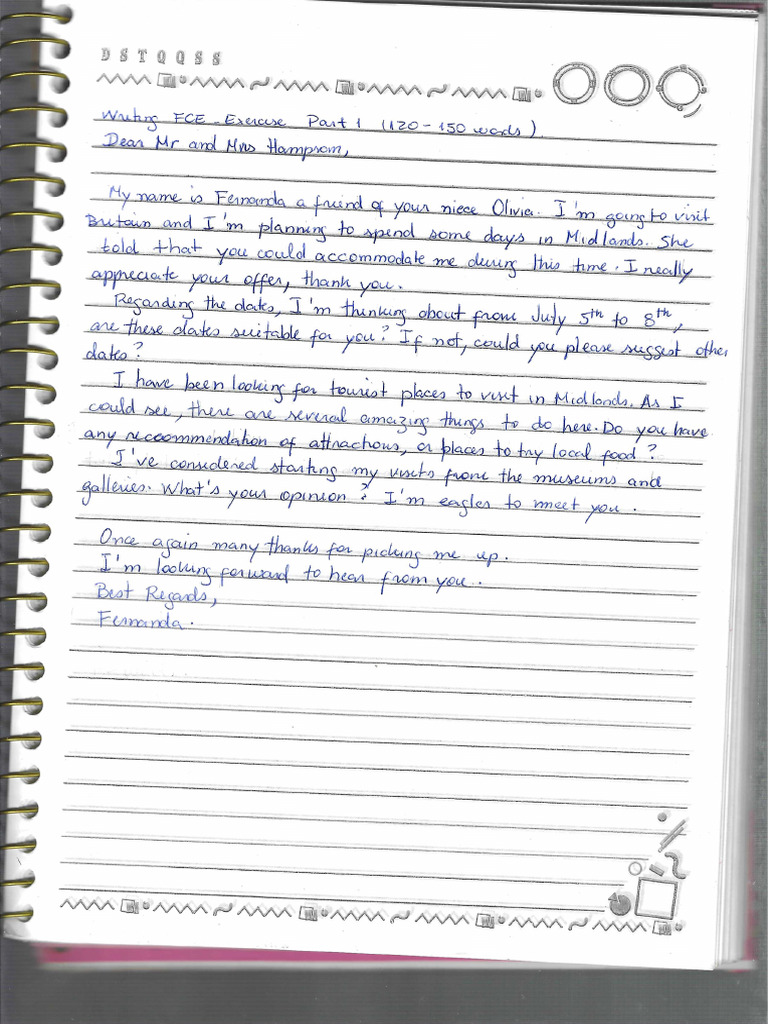 D S T Q Q S S
Writing FCE - Exercise Part 1 (120 - 150 words)
Dear Mr and Mrs Hampsom,
My name is Fernanda a friend of your niece Olivia. I'm going to visit
Britain and I'm planning to spend some days in Midlands. She
told that you could accommodate me during this time. I really
appreciate your offer, thank you.
Regarding the dates, I'm thinking about from July 5th to 8th,
are these dates suitable for you? If not, could you please suggest other
dates?
I have been looking for tourist places to visit in Midlands. As I
could see, there are several amazing things to do here. Do you have
any recommendation of attractions, or places to try local food?
I've considered starting my visits from the museums and
galleries. What's your opinion? I'm eagles to meet you.
Once again many thanks for picking me up.
I'm looking forward to hear from you.
Best Regards,
Fernanda.